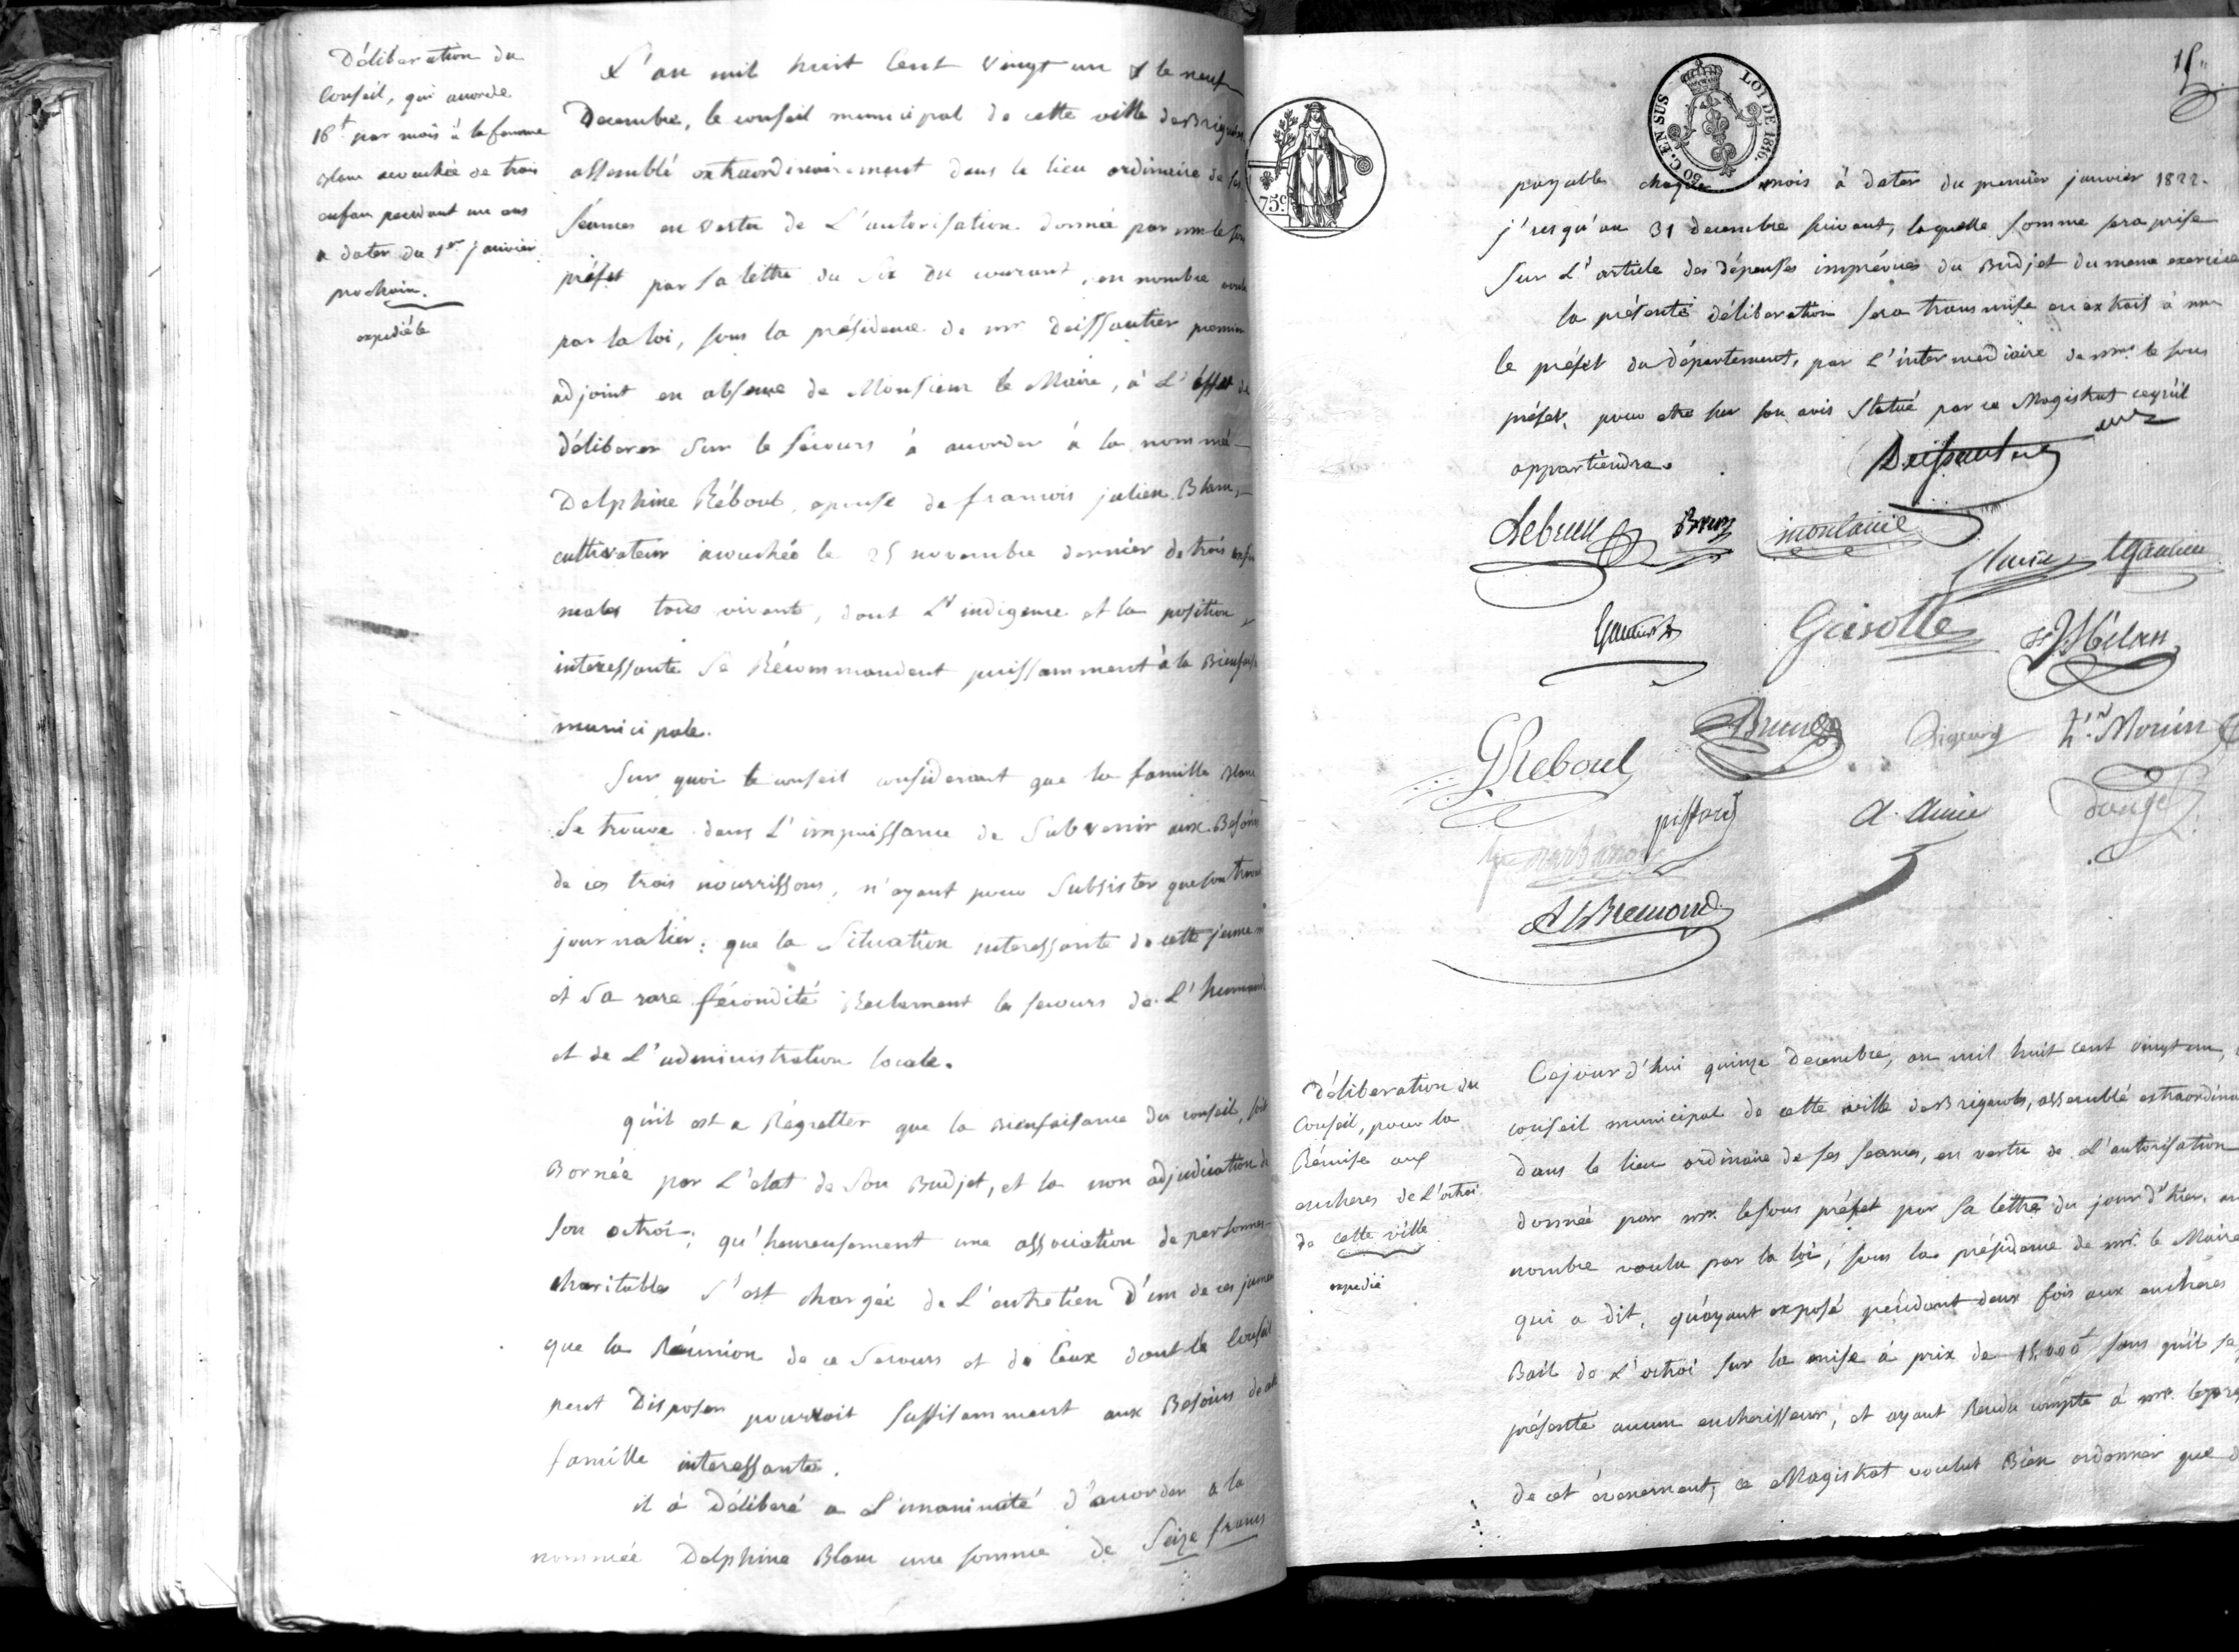 Déliberation du
Conseil, qui accorde
16f par mois à la femme
Blanc accouchée de trois
enfans pendant un ans
a dater du 1er janvier
prochain.
expediée
L'an mil huit Cent vingt un & le neuf
Decembre, le conseil municipal de cette ville de Brignoles
assemblé extraordinairement dans le lieu ordinaire de ses
séances en vertu de L'autorisation donnée par mr le sous
préfet par sa lettre du six du courant, en nombre voulu
par la loi, sous la présidence de mr deissautier premier
adjoint en absence de Monsieur le Maire, à L'effet de
déliberer sur le secours à accorder à la nommée
Delphine Réboul, epouse de francois julien Blanc,
cultivateur accouchée le 25 novembre dernier de trois enfans
males tous vivants, dont L'indigence et la position
interessante se Récommandent puissamment à la Bienfaisance
municipale.
Sur quoi le conseil considerant que la famille Blanc
se trouve dans L'impuissance de Subvenir aux Besoins
de ces trois nourrissons, n'ayant pour Subsister que son travail
journalier: que la Situation interessante de cette jeune
et sa rare fécondité Reclament les secours de L'humanité
et de L'administration locale.
qu'il est a Régretter que la Bienfaisance du conseil, soit
Bornée par L'état de son Budjet, et la non adjudication de
son octroi; qu'heureusement une association de personnes
charitables s'est chargée de L'entretien D'un de ces jumeaux
que la Réunion de ce Secours et de Ceux dont le Conseil
peut Disposer pourvoit suffisamment aux Besoins de cette
famille interessante.
il à Déliberé a L'unanimité d'accorder a la
nommée Delphine Blanc une somme de Seize francs
75c
50 C. EN SUS
LOI DE 1816.
payable chaque mois à dater du premier janvier 1822.
j'usqu'au 31 decembre suivant, laquelle somme sera prise
sur L'article des dépenses imprévues du Budjet du meme exercice
la présente déliberation sera transmise en extrait à mr
le préfet du département, par L'intermediaire de mr le sous
préfet, pour etre sur son avis Statué par ce Magistrat ceq'uil
appartiendra.
Deissautier
Lebrun
Brun
montaud
Gautier
Garsolle
GReboul
Brun
hrd Morin
pistory
A. Amic
Bremond
Déliberation du
Conseil, pour la
Rémise aux
encheres de L'octroi
de cette ville
expedié
Cejourd'hui quinze Decembre, an mil huit cent vingt un,
conseil municipal de cette ville de Brignoles, assemblé extraordin
dans le lieu ordinaire de ses seances, en vertu de L'autorisation
donnée par mr. le sous préfet par sa lettre du jour d'hier, en
nombre voulu par la loi, sous la présidence de mr. le Maire
qui a dit, qu'ayant exposé pendant deux fois aux encheres
Bail de L'octroi sur la mise à prix de 15,000f sans qu'il se
présenta aucun encherisseur, et ayant Rendu compte à mr. le pref
de cet évenement, ce Magistrat voulut Bien ordonner que